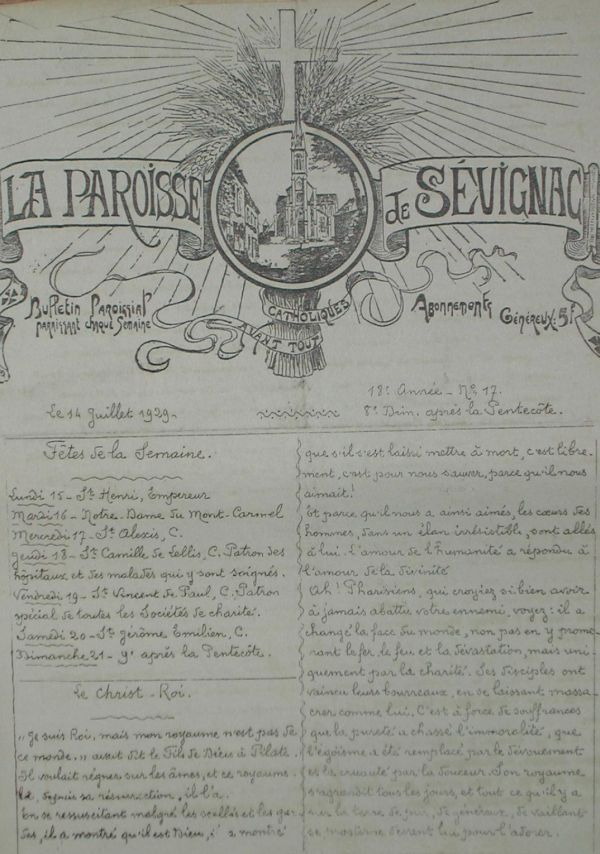 LA PAROISSE de SÉVIGNAC
Bulletin Paroissial
paraissant chaque Semaine
CATHOLIQUES
AVANT TOUT
Abonnements
Généreux: 5f
Le 14 Juillet 1929-
18e Année - No 17.
8e Dim. après la Pentecôte.
Fêtes de la Semaine.
Lundi 15 - St Henri, Empereur
Mardi 16 - Notre-Dame du Mont-Carmel
Mercredi 17 - St Alexis, C.
Jeudi 18 - St Camille de Lellis, C. Patron des
hôpitaux et des malades qui y sont soignés.
Vendredi 19 - St Vincent de Paul, C. Patron
spécial de toutes les Sociétés de charité.
Samedi 20 - St Jérôme Emilien, C.
Dimanche 21 - 9e après la Pentecôte.
Le Christ-Roi.
"Je suis Roi, mais mon royaume n'est pas de
ce monde," avait dit le Fils de Dieu à Pilate.
Il voulait régner sur les âmes, et ce royaume
là, depuis sa résurrection, il l'a.
En se ressuscitant malgré les scellés et les gar
des, il a montré qu'il est Dieu, montré
que s'il s'est laissé mettre à mort, c'est libre-
ment, c'est pour nous sauver, parce qu'il nous
aimait!
Et parce qu'il nous a ainsi aimés, les cœurs des
hommes, dans un élan irrésistible, sont allés
à lui. L'amour de l'humanité a répondu à
l'amour de la divinité
Ah! Pharisiens, qui croyiez si bien avoir
à jamais abattu votre ennemi, voyez: il a
changé la face du monde, non pas en y prome
nant le fer, le feu et la dévastation, mais uni-
quement par la charité. Ses disciples ont
vaincu leurs bourreaux, en se laissant massa
crer comme lui. C'est à force de souffrances
que la pureté a chassé l'immoralité, que
l'égoïsme a été remplacé par le dévouement
et la cruauté par la douceur. Son royaume
s'agrandit tous les jours, et tout ce qu'il y a
sur la terre de pur, de généreux, de vaillant
se prosterne devant lui pour l'adorer.